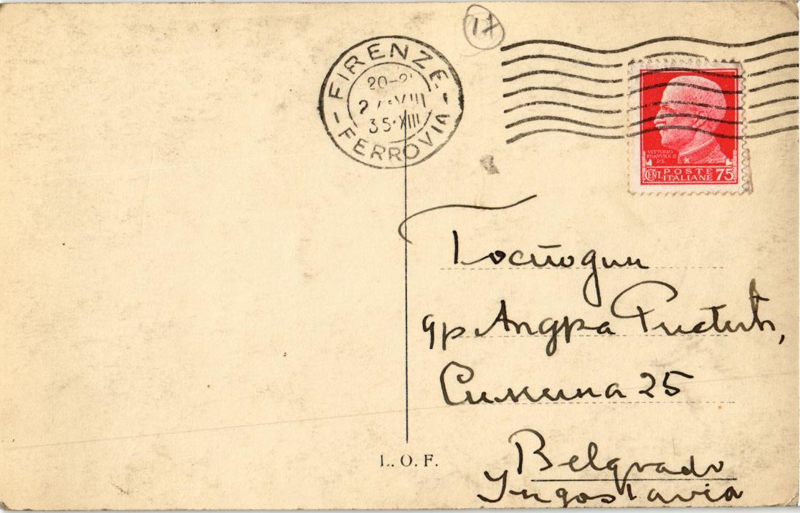 17
FIRENZE
20-21
35·XIII
FERROVIA
VITTORIO
EMANUELE
CENT. POSTE ITALIANE 75
Господин
др Андра Ристић,
Симина 25
Belgrado
Jugoslavia
I. O. F.